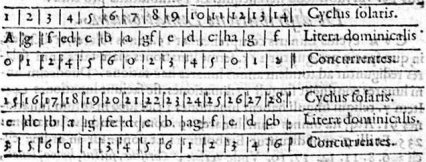 1 | 2 | 3 | 4 | 5 | 6 | 7 | 8 | 9 | 10 | 11 | 12 | 13 | 14 | Cyclus solaris.
A | g | f | ed | c | b | a | gf | e | d | c | ba | g | f | Litera dominicalis
0 | 1 | 2 | 4 | 5 | 6 | 0 | 2 | 3 | 4 | 5 | 0 | 1 | 2 | Concurrentes.
15 | 16 | 17 | 18 | 19 | 20 | 21 | 22 | 23 | 24 | 25 | 26 | 27 | 28 | Cyclus solaris.
e | dc | b | a | g | fe | d | c | b | ag | f | e | d | cb | Literæ dominicalis.
3 | 5 | 6 | 0 | 1 | 3 | 4 | 5 | 6 | 1 | 2 | 3 | 4 | 6 | Concurrentes.